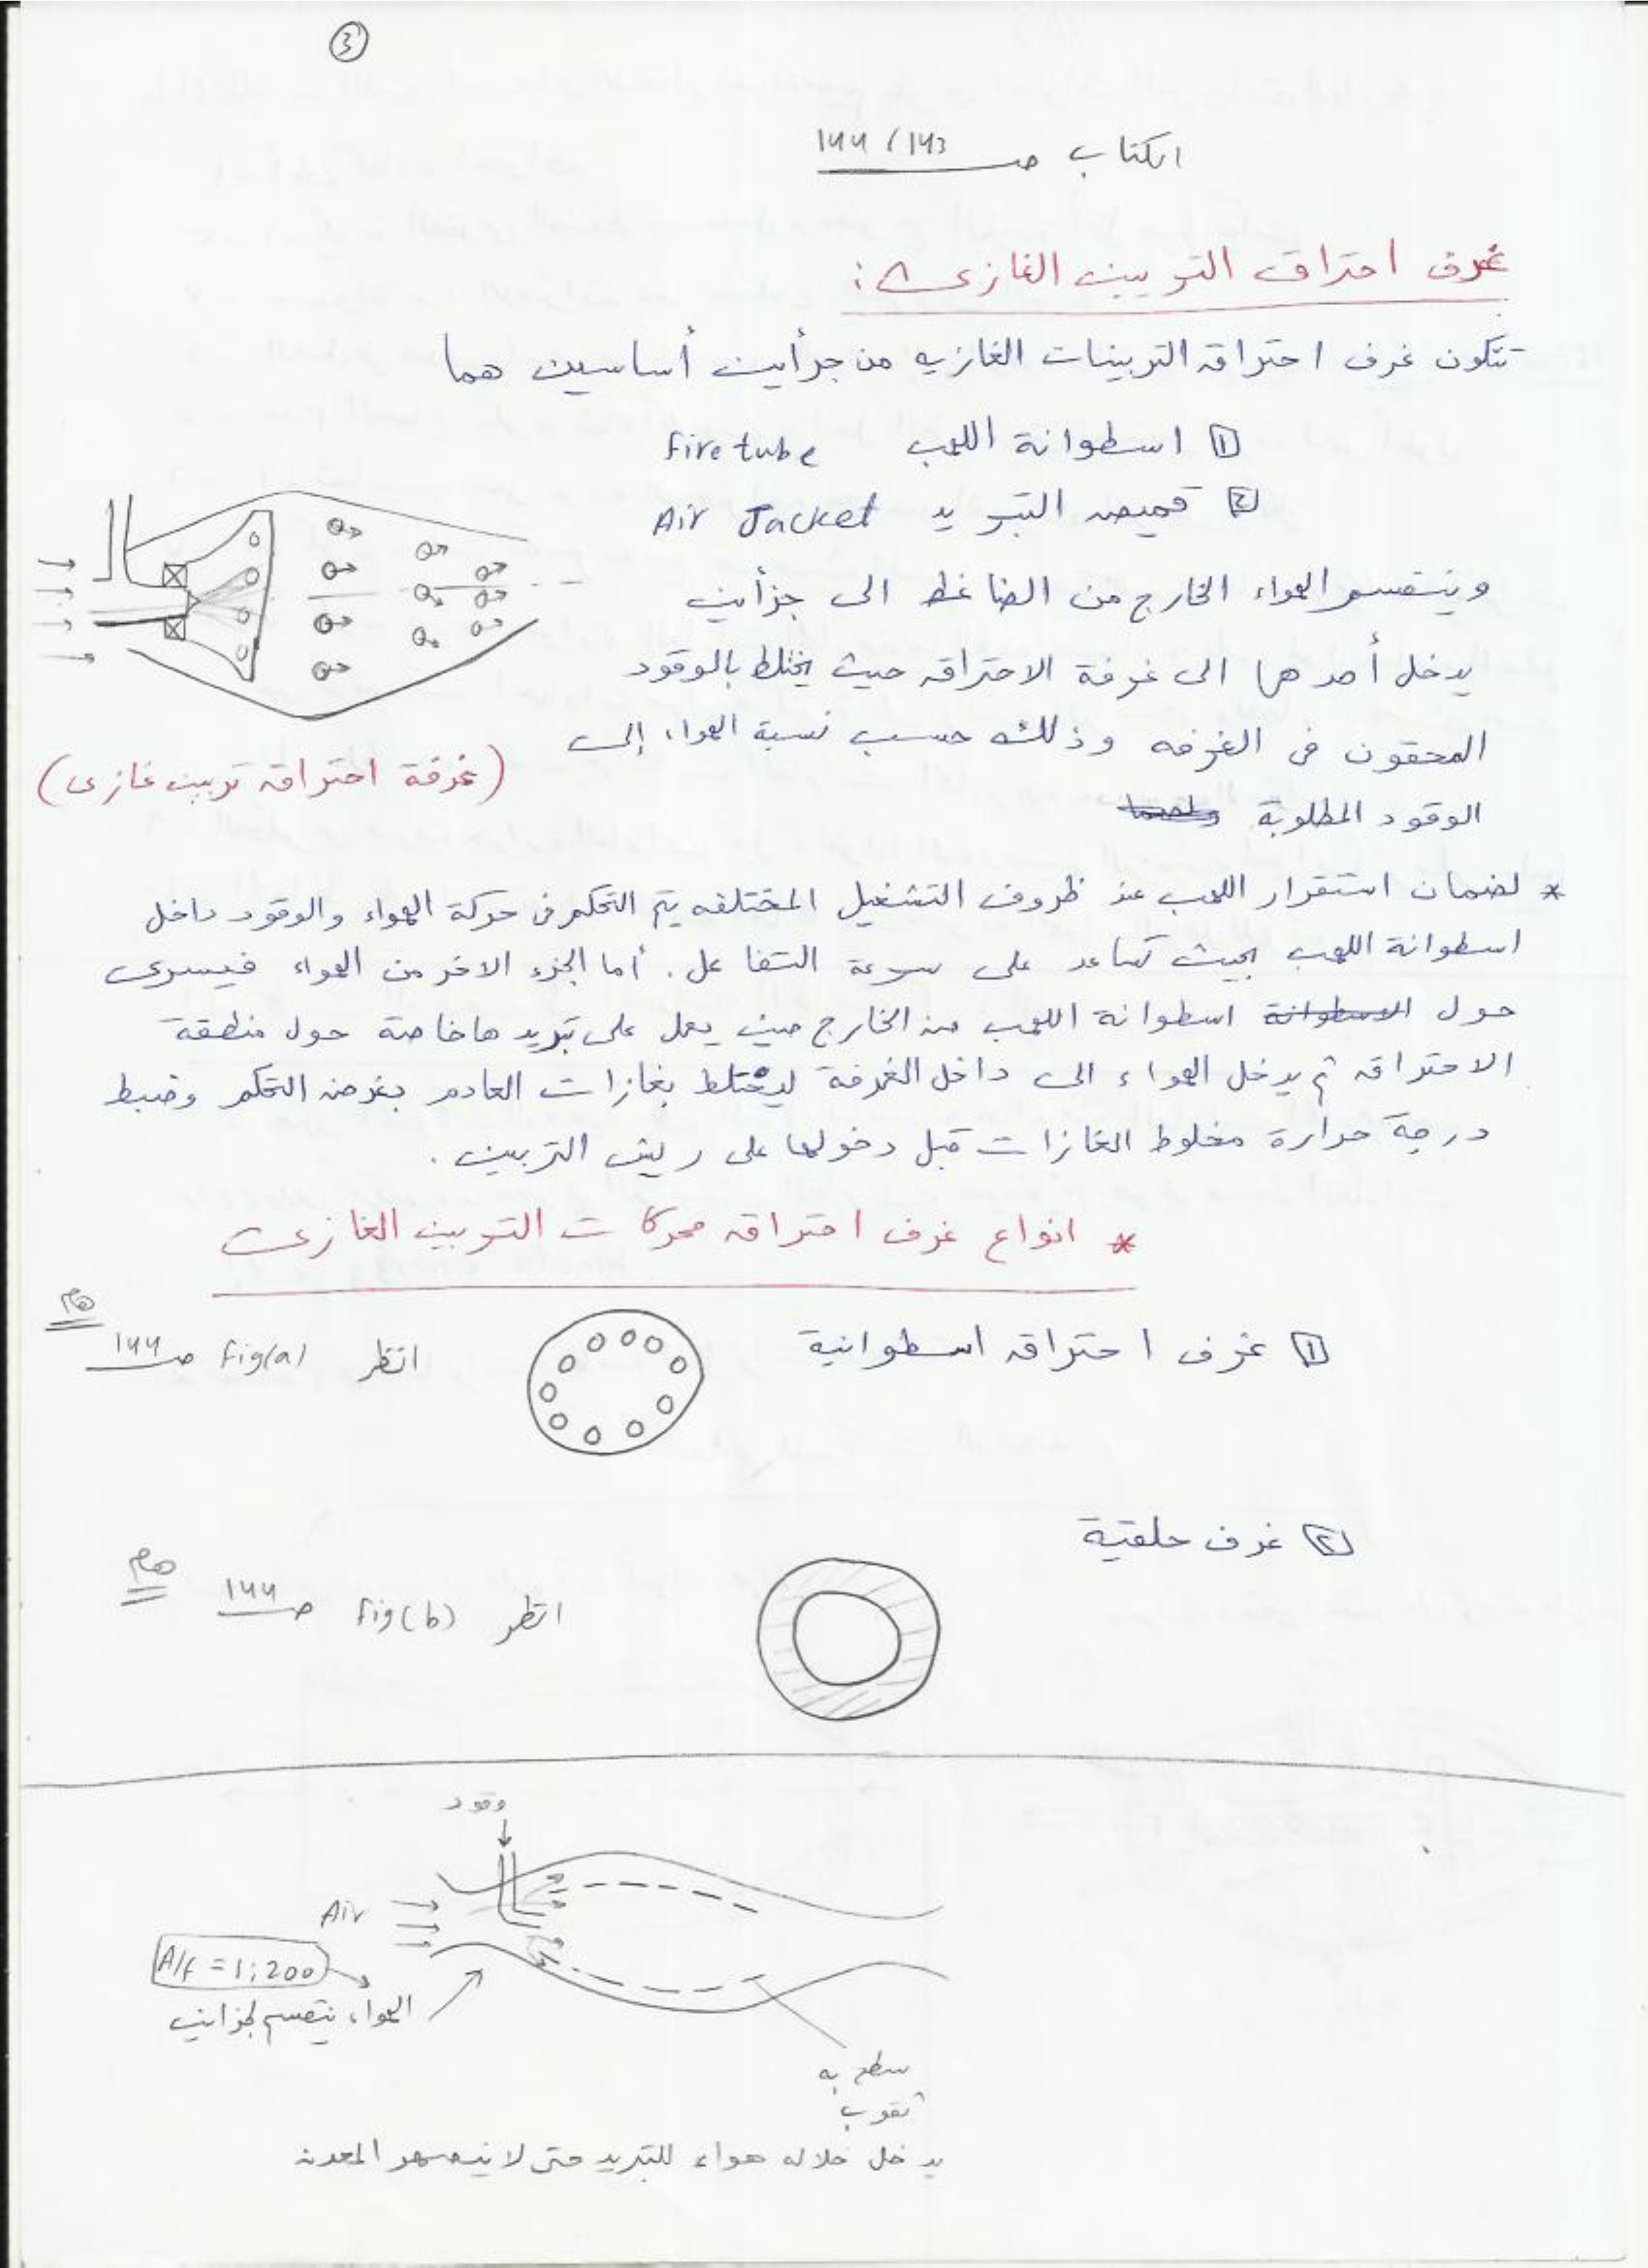 3
الكتاب صـ 143 / 144
غرف احتراق التوربين الغازى :
تتكون غرف احتراق التربينات الغازيه من جزأين أساسين هما
1 اسطوانة اللهب Fire tube
2 قميص التبريد Air Jacket
وينقسم الهواء الخارج من الضاغط الى جزأين
يدخل أحدهما الى غرفة الاحتراق حيث يختلط بالوقود
المحقون فى الغرفه وذلك حسب نسبة الهواء إلى
الوقود المطلوبة
(غرفة احتراق تربين غازى)
* لضمان استقرار اللهب عند ظروف التشغيل المختلفه يتم التحكم فى حركة الهواء والوقود داخل
اسطوانة اللهب بحيث تساعد على سرعة التفاعل. أما الجزء الاخر من الهواء فيسرى
حول الاسطوانة اسطوانة اللهب من الخارج حيث يعمل على تبريدها خاصة حول منطقة
الاحتراق ثم يدخل الهواء الى داخل الغرفة ليختلط بغازات العادم بغرض التحكم وضبط
درجة حرارة مخلوط الغازات قبل دخولها على ريش التربين .
* انواع غرف احتراق محركات التوربين الغازى
1 غرف احتراق اسطوانية
انظر Fig(a) صـ 144
هام
2 غرف حلقية
انظر Fig(b) صـ 144
هام
وقود
Air
A/F = 1:200
الهواء ينقسم لجزأين
سطح به
ثقوب
يدخل خلاله هواء للتبريد حتى لا ينصهر المعدن